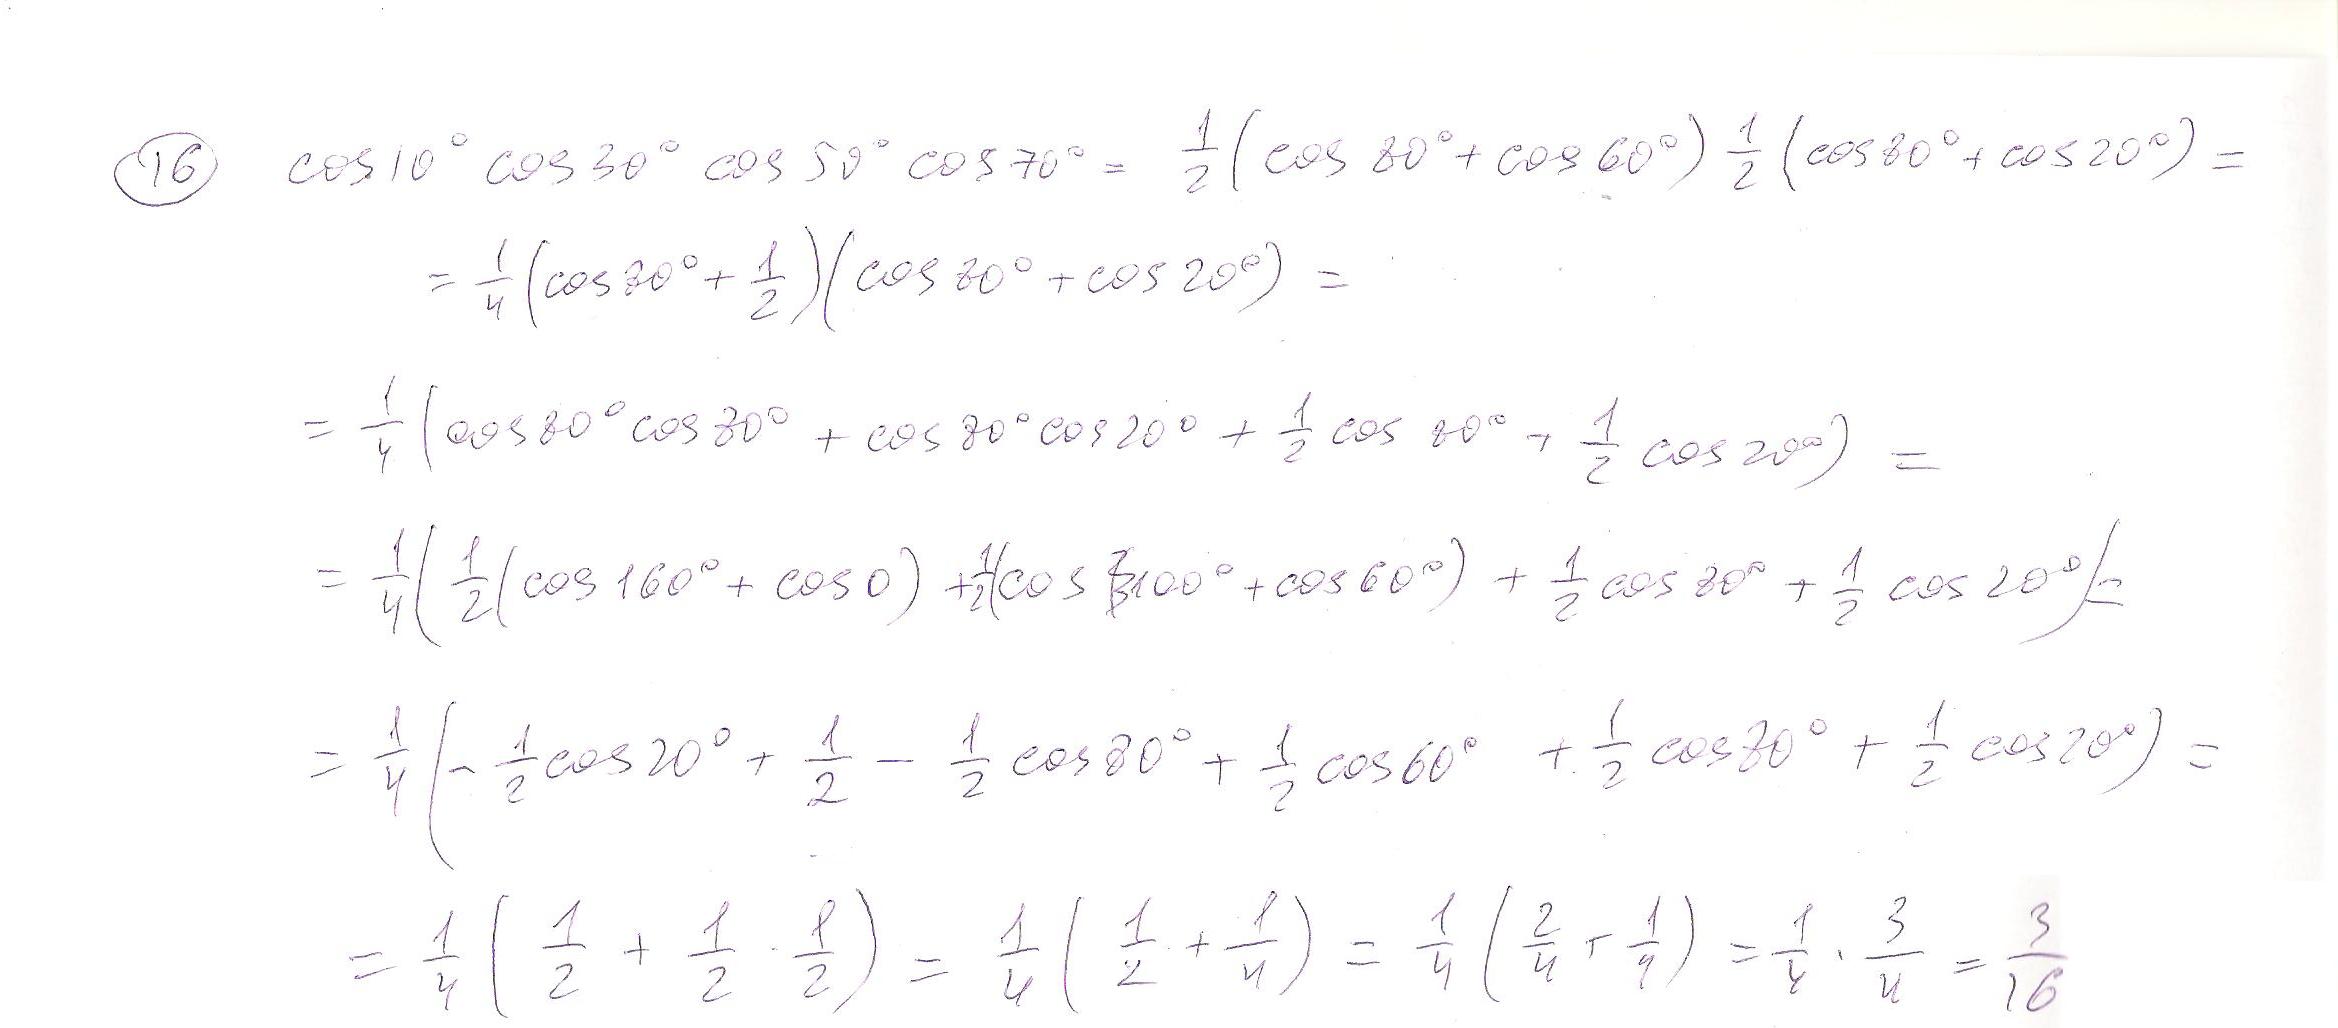 16 cos 10° cos 30° cos 50° cos 70° = 1/2 (cos 80° + cos 60°) 1/2 (cos 80° + cos 20°) =
= 1/4 (cos 80° + 1/2)(cos 80° + cos 20°) =
= 1/4 (cos 80° cos 80° + cos 80° cos 20° + 1/2 cos 80° + 1/2 cos 20°) =
= 1/4 (1/2 (cos 160° + cos 0) + 1/2 (cos 100° + cos 60°) + 1/2 cos 80° + 1/2 cos 20°) =
= 1/4 (- 1/2 cos 20° + 1/2 - 1/2 cos 80° + 1/2 cos 60° + 1/2 cos 80° + 1/2 cos 20°) =
= 1/4 (1/2 + 1/2 · 1/2) = 1/4 (1/2 + 1/4) = 1/4 (2/4 + 1/4) = 1/4 · 3/4 = 3/16